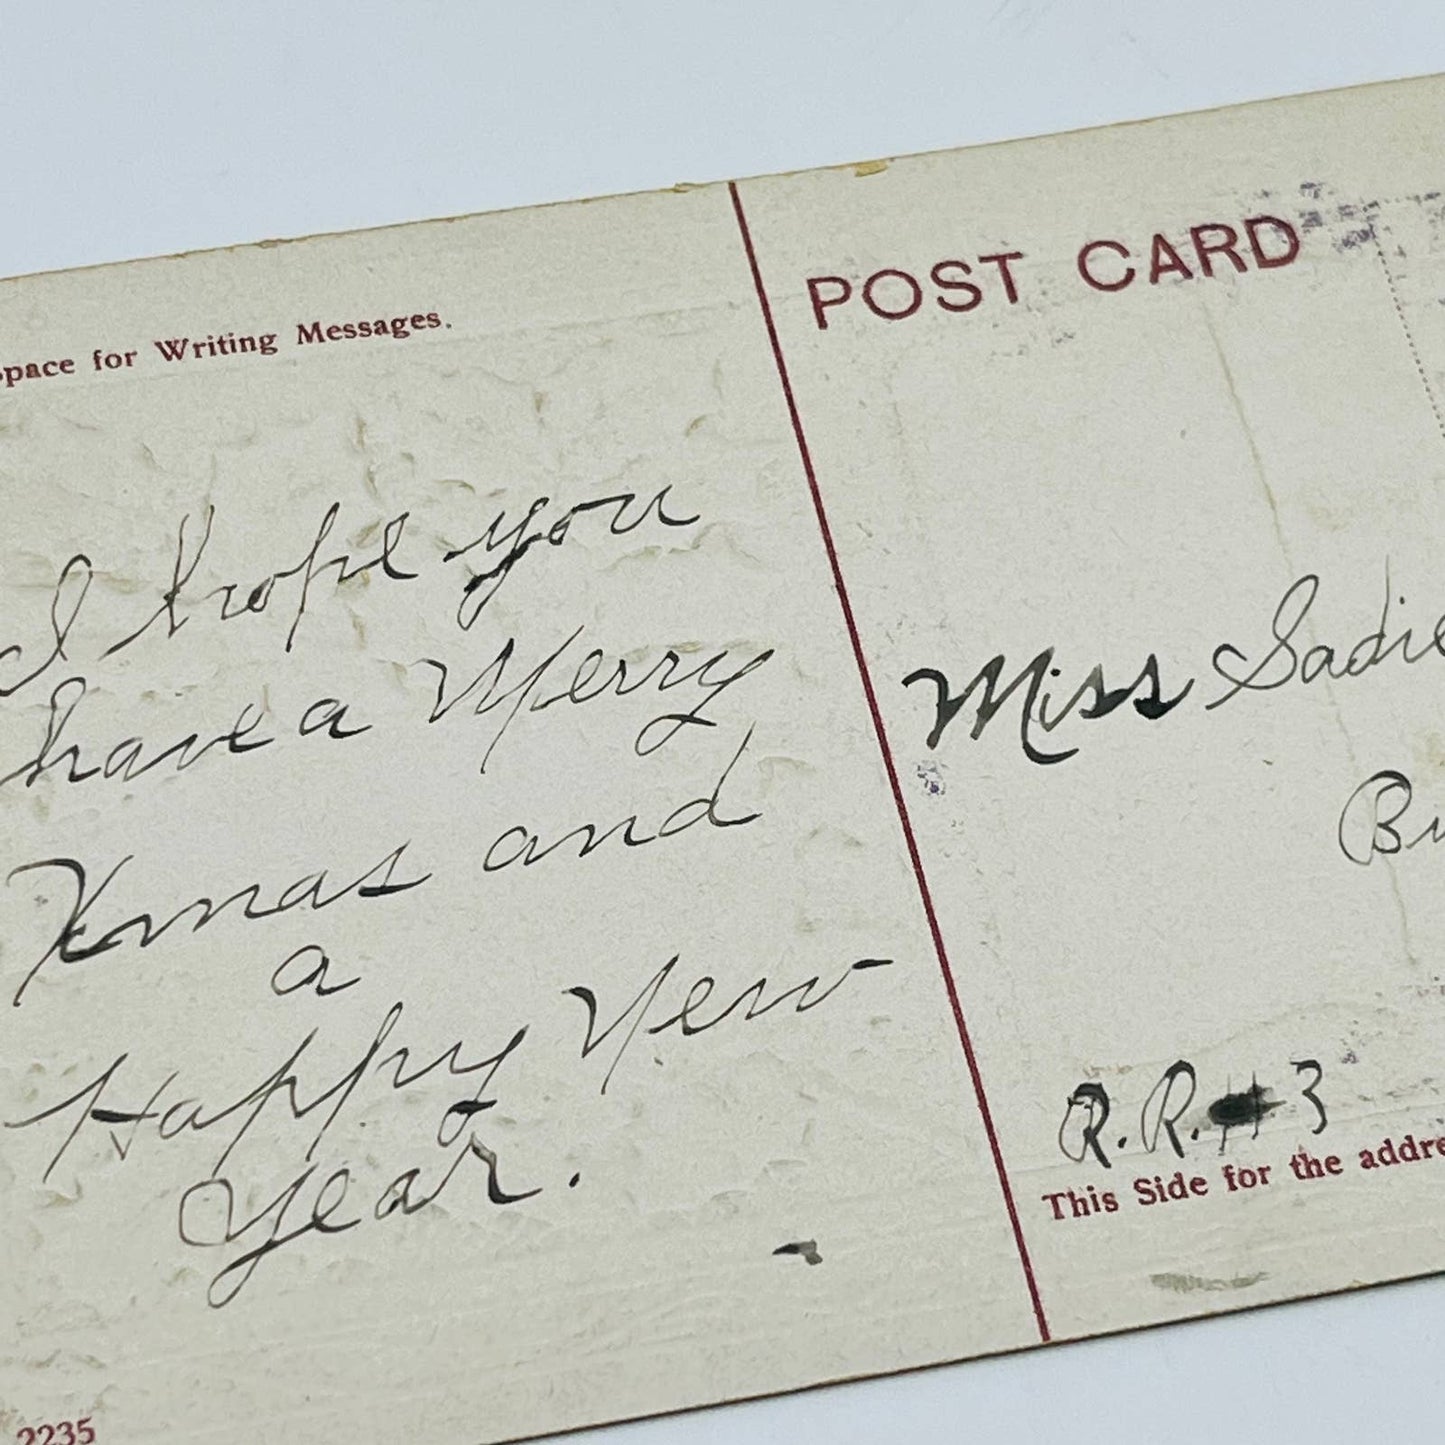 Space for Writing Messages.
I hope you
have a Merry
Xmas and
a
Happy New
Year.
2235
POST CARD
Miss Sadie
R.R. #3
This Side for the addre